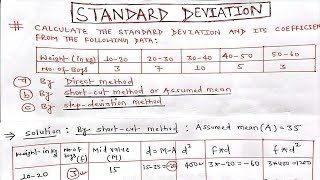 STANDARD DEVIATION
# CALCULATE THE STANDARD DEVIATION AND ITS COEFFICIENT
FROM THE FOLLOWING DATA:
Weight (in kg) 10-20 20-30 30-40 40-50 50-60
No. of Boys 3 7 10 5 3
(a) By Direct method
(b) By short-cut method or Assumed mean
(c) By step-deviation method
→ Solution: By short-cut method: Assumed mean (A) = 35
Weight-in kg No-of Boys (f) Mid value (M) d = M-A d² f*d f*d²
10-20 3 15 15-35=-20 400 3*-20=-60